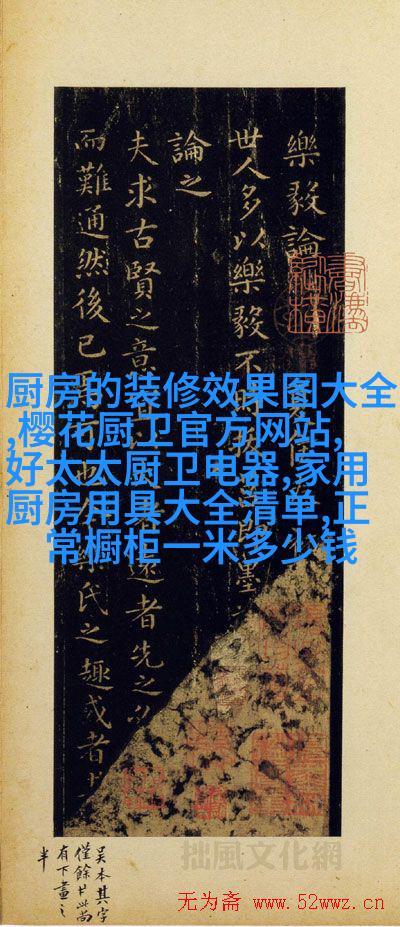 厨房的装修效果图大全
,樱花厨卫官方网站,
好太太厨卫电器,家用
厨房用具大全清单,正
常橱柜一米多少钱
樂毅論
世人多以樂毅不
論之
夫求古賢之意 遠者先之
而難通然後已焉可也 氏之趣或者
吴本其字
僅餘 此尚
有下畫之
半
拙風文化網
无为斋 www.52wwz.cn